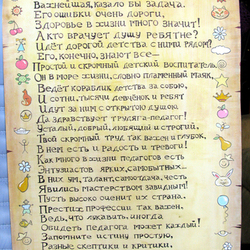 Важнейшая, казало бы задача.
Его ошибки очень дороги,
Здоровье в жизни много значит!
А кто врачует душу ребятне?
Идёт дорогой детства с ними рядом?
Его, конечно, знают все-
Простой и скромный детский воспитатель.
Он в море жизни, словно пламенный маяк,
Ведёт кораблик детства за собою,
И сотни, тысячи девчёнок и ребят
Идут за ним с открытою душою.
Да здравствует трудяга-педагог!
Усталый, добрый, любящий и строгий.
Твой скромный труд так важен и глубок,
В нём есть и радость и тревоги!
Как много в жизни педагогов есть
Энтузиастов ярких, самобытных...
В них ум, талант, самоотдача, честь
Явились мастерством завидным!
Пусть высоко оценит их страна.
Престиж профессии так важен.
Ведь, что лукавить, иногда
Обидеть педагога может каждый!
Запомните истину простую,
Разные скептики и критики,